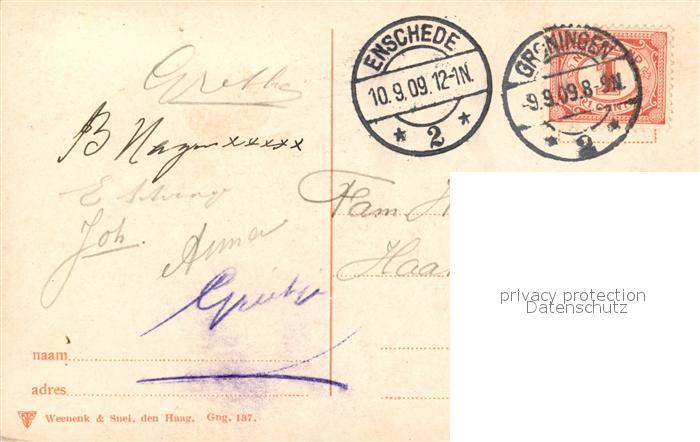 ENSCHEDE
10.9.09.12-1N.
* 2 *
GRONINGEN
9.9.09.8-9N.
* 2 *
1
Gretha
B Hagen xxxxx
Joh.
Anna
Grietje
Fam H
Haa
privacy protection
Datenschutz
naam
adres
Weenenk & Snel, den Haag. Gng. 137.